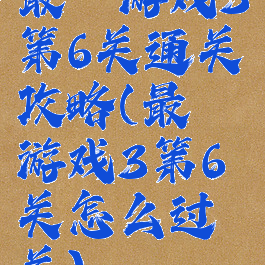 最 游戏3
第6关通关
攻略(最
游戏3第6
关怎么过
关)